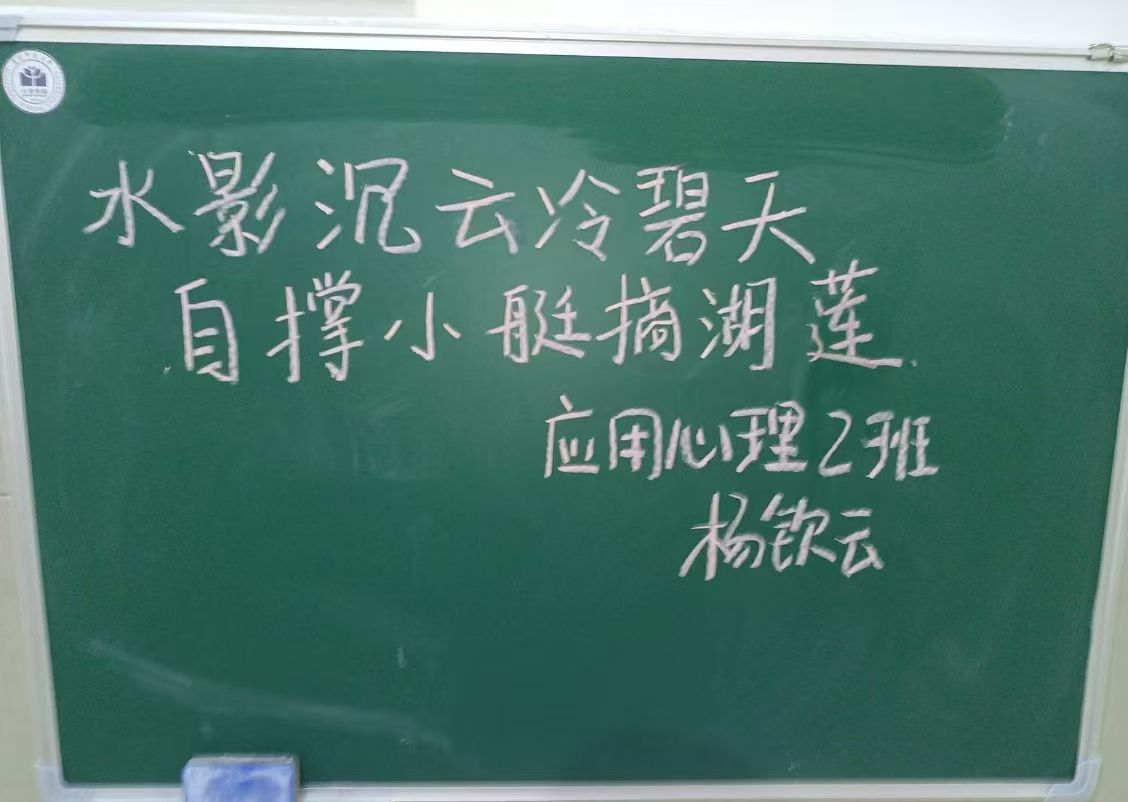 水影沉云冷碧天
自撑小艇摘湖莲
应用心理2班
杨钦云